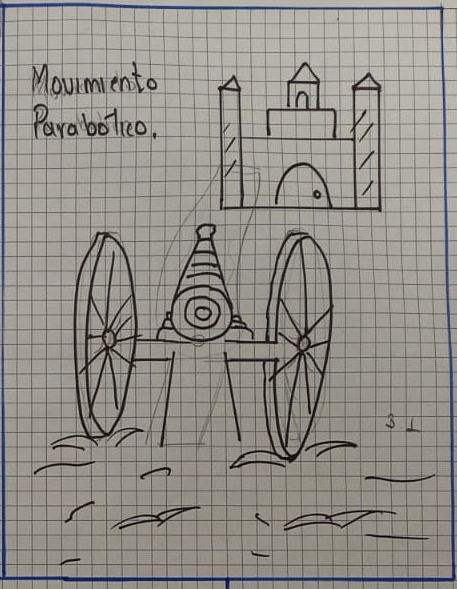 Movimiento
Parabólico.